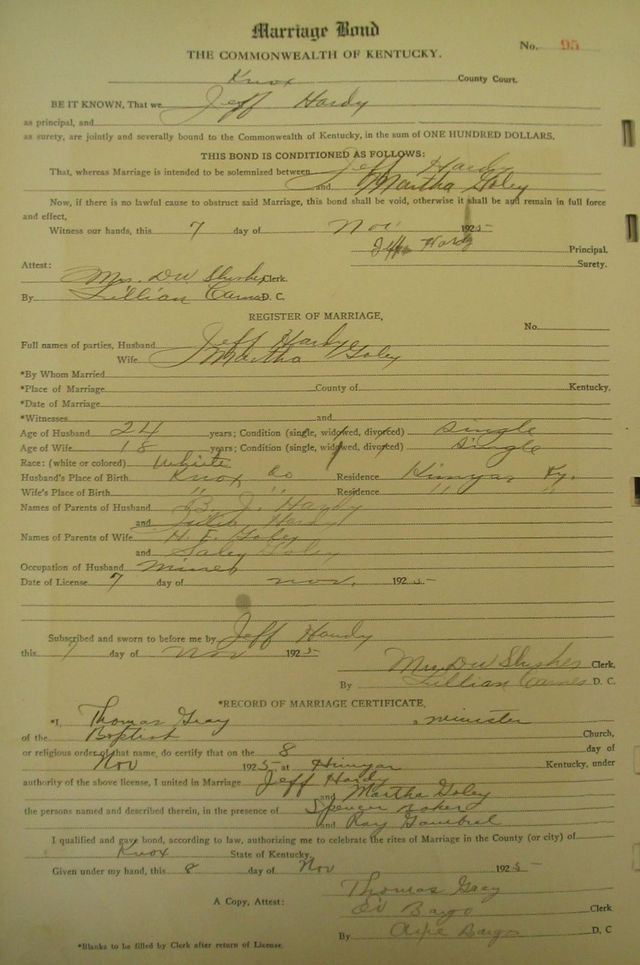 Marriage Bond
THE COMMONWEALTH OF KENTUCKY.
No. 95
Knox County Court.
BE IT KNOWN, That we Jeff Hardy
as principal, and
as surety, are jointly and severally bound to the Commonwealth of Kentucky, in the sum of ONE HUNDRED DOLLARS.
THIS BOND IS CONDITIONED AS FOLLOWS:
That, whereas Marriage is intended to be solemnized between Jeff Hardy
and Martha Goley
Now, if there is no lawful cause to obstruct said Marriage, this bond shall be void, otherwise it shall be and remain in full force
and effect,
Witness our hands, this 7 day of Nov 1925
Jeff Hardy Principal.
Surety.
Attest:
Mrs. DW Clerk.
By Lillian D. C.
REGISTER OF MARRIAGE,
No.
Full names of parties, Husband Jeff Hardy
Wife Martha Goley
*By Whom Married
*Place of Marriage County of Kentucky,
*Date of Marriage
*Witnesses and
Age of Husband 24 years; Condition (single, widowed, divorced) single
Age of Wife 18 years; Condition (single, widowed, divorced) single
Race: (white or colored) White
Husband's Place of Birth Knox Co Residence Himyar Ky.
Wife's Place of Birth " " Residence " "
Names of Parents of Husband J. Hardy
and Hardy
Names of Parents of Wife Goley
and Goley
Occupation of Husband Miner
Date of License 7 day of Nov. 1925
Subscribed and sworn to before me by Jeff Hardy
this 7 day of Nov 1925
Mrs DW Clerk,
By Lillian D. C.
*RECORD OF MARRIAGE CERTIFICATE,
*I, Thomas Gray , minister
of the Baptist Church,
or religious order of that name, do certify that on the 8 day of
Nov 1925 at Himyar Kentucky, under
authority of the above license, I united in Marriage Jeff Hardy
and Martha Goley
the persons named and described therein, in the presence of Spencer
and Ray Gambrel
I qualified and gave bond, according to law, authorizing me to celebrate the rites of Marriage in the County (or city) of
Knox State of Kentucky
Given under my hand, this 8 day of Nov 1925
Thomas Gray
A Copy, Attest: Ed Bargo Clerk
By Bargo D. C
*Blanks to be filled by Clerk after return of License.